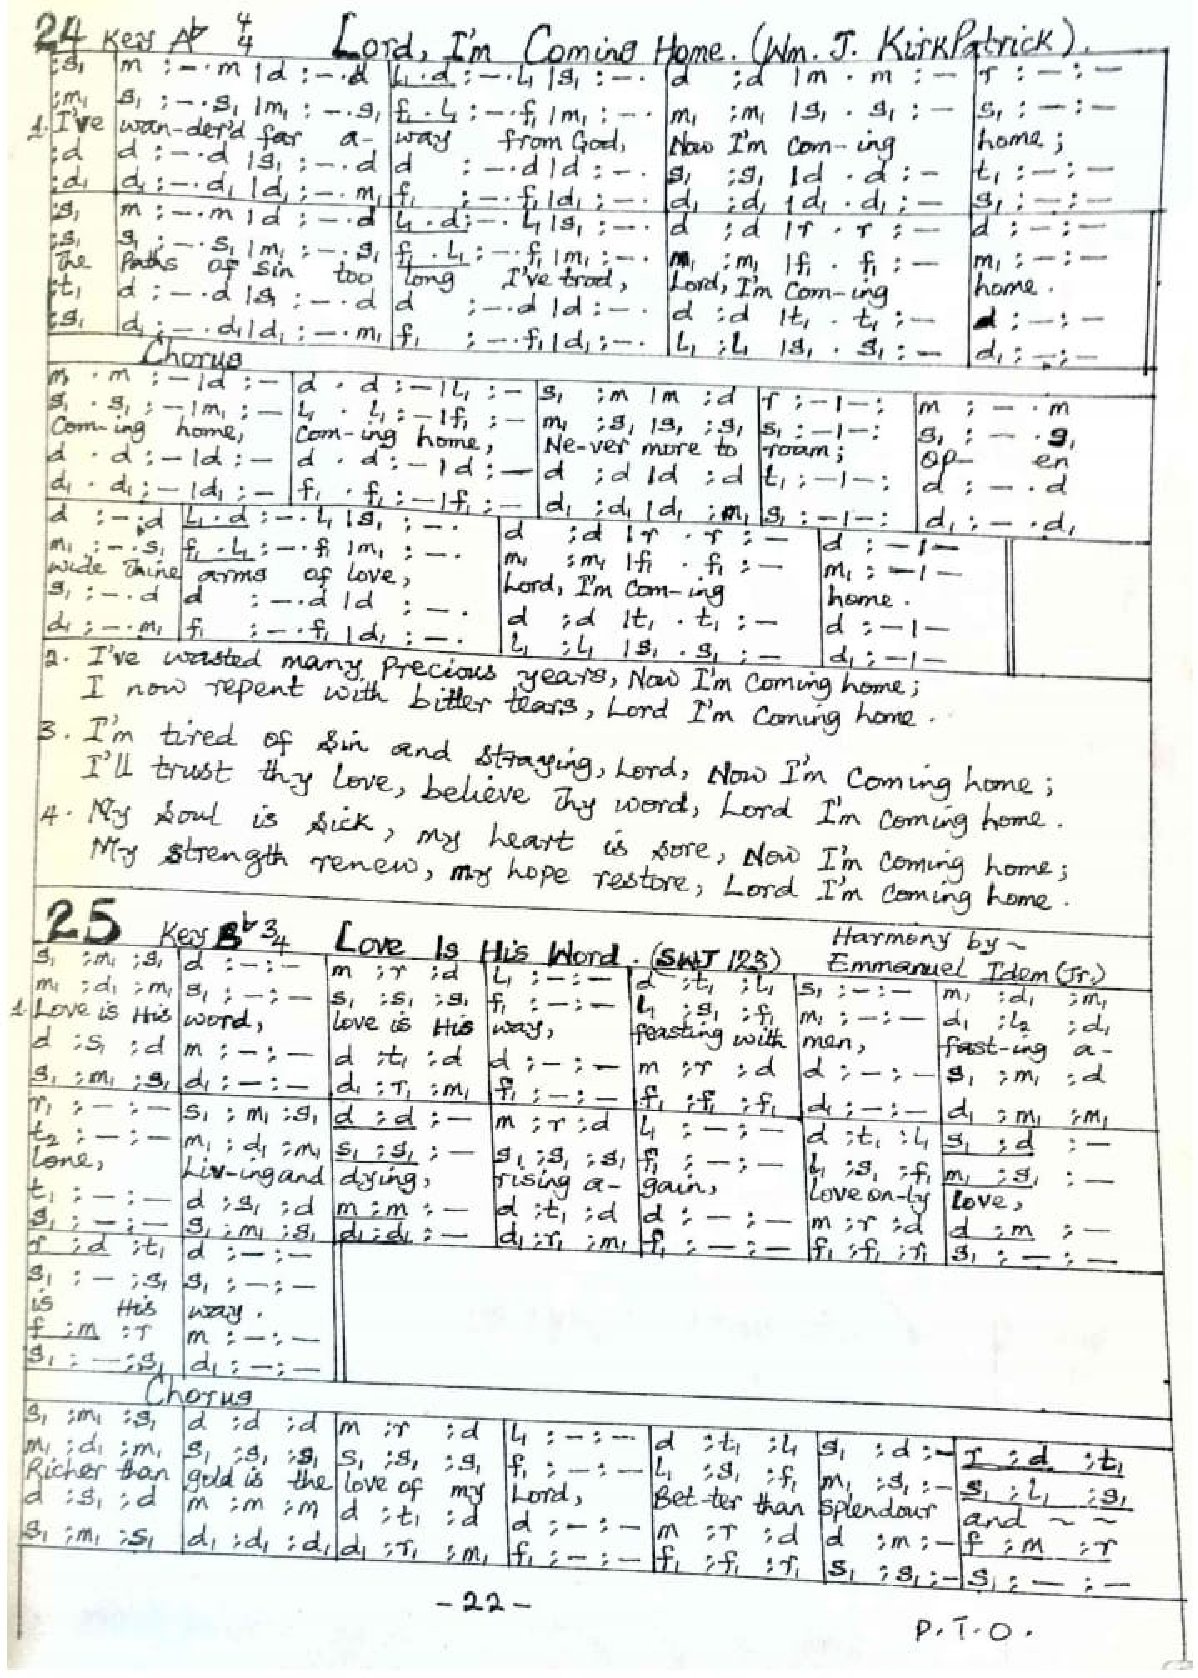 24 Key A♭ 4/4 Lord, I'm Coming Home. (Wm. J. KirkPatrick).
:s₁ | m :-.m |d :-.d | l₁.d :-.l₁ |s₁ :-. | d :d |m . m :- | r :-:-
:m₁ | s₁ :-.s₁ |m₁ :-.s₁ | f₁.l₁ :-.f₁ |m₁ :-. | m₁ :m₁ |s₁ . s₁ :- | s₁ :-:-
1. I've wan-der'd far a- way from God, Now I'm com-ing home;
:d | d :-.d |s₁ :-.d | d :-.d |d :-. | s₁ :s₁ |d . d :- | t₁ :-:-
:d₁ | d₁ :-.d₁ |d₁ :-.m₁ | f₁ :-.f₁ |d₁ :-. | d₁ :d₁ |d₁ . d₁ :- | s₁ :-:-
:s₁ | m :-.m |d :-.d | l₁.d :-.l₁ |s₁ :-. | d :d |r . r :- | d :-:-
:s₁ | s₁ :-.s₁ |m₁ :-.s₁ | f₁.l₁ :-.f₁ |m₁ :-. | m₁ :m₁ |f₁ . f₁ :- | m₁ :-:-
The Paths of sin too long I've trod, Lord, I'm Com-ing home.
:t₁ | d :-.d |s₁ :-.d | d :-.d |d :-. | d :d |t₁ . t₁ :- | d :-:-
:s₁ | d₁ :-.d₁ |d₁ :-.m₁ | f₁ :-.f₁ |d₁ :-. | l₁ :l₁ |s₁ . s₁ :- | d₁ :-:-
Chorus
m . m :- |d :- | d . d :- |l₁ :- | s₁ :m |m :d | r :-|-: | m :-.m
s₁ . s₁ :- |m₁ :- | l₁ . l₁ :- |f₁ :- | m₁ :s₁ |s₁ :s₁ | s₁ :-|-: | s₁ :-.s₁
Com-ing home, Com-ing home, Ne-ver more to roam; Op- en
d . d :- |d :- | d . d :- |d :- | d :d |d :d | t₁ :-|-: | d :-.d
d₁ . d₁ :- |d₁ :- | f₁ . f₁ :- |f₁ :- | d₁ :d₁ |d₁ :m₁ | s₁ :-|-: | d₁ :-.d₁
d :-:d | l₁.d :-.l₁ |s₁ :-. | d :d |r . r :- | d :-|-
m₁ :-.s₁ | f₁.l₁ :-.f₁ |m₁ :-. | m₁ :m₁ |f₁ . f₁ :- | m₁ :-|-
wide Thine arms of love, Lord, I'm Com-ing home.
s₁ :-.d | d :-.d |d :-. | d :d |t₁ . t₁ :- | d :-|-
d₁ :-.m₁ | f₁ :-.f₁ |d₁ :-. | l₁ :l₁ |s₁ . s₁ :- | d₁ :-|-
2. I've wasted many precious years, Now I'm Coming home;
I now repent with bitter tears, Lord I'm Coming home.
3. I'm tired of sin and straying, Lord, Now I'm Coming home;
I'll trust thy love, believe Thy word, Lord I'm Coming home.
4. My Soul is sick, my heart is sore, Now I'm Coming home;
My strength renew, my hope restore, Lord I'm Coming home.
25 Key B♭ 3/4 Love Is His Word. (SWJ 123) Harmony by ~
Emmanuel Idem (Jr.)
s₁ :m₁ :s₁ | d :-:- | m :r :d | l₁ :-:- | d :t₁ :l₁ | s₁ :-:- | m₁ :d₁ :m₁
m₁ :d₁ :m₁ | s₁ :-:- | s₁ :s₁ :s₁ | f₁ :-:- | l₁ :s₁ :f₁ | m₁ :-:- | d₁ :l₂ :d₁
1. Love is His word, love is His way, feasting with men, fast-ing a-
d :s₁ :d | m :-:- | d :t₁ :d | d :-:- | m :r :d | d :-:- | s₁ :m₁ :d
s₁ :m₁ :s₁ | d₁ :-:- | d₁ :r₁ :m₁ | f₁ :-:- | f₁ :f₁ :f₁ | d₁ :-:- | d₁ :m₁ :m₁
r₁ :-:- | s₁ :m₁ :s₁ | d :d :- | m :r :d | l₁ :-:- | d :t₁ :l₁ | s₁ :d :-
t₂ :-:- | m₁ :d₁ :m₁ | s₁ :s₁ :- | s₁ :s₁ :s₁ | f₁ :-:- | l₁ :s₁ :f₁ | m₁ :s₁ :-
lone, Liv-ing and dying, rising a- gain, love on-ly love,
t₁ :-:- | d :s₁ :d | m :m :- | d :t₁ :d | d :-:- | m :r :d | d :m :-
s₁ :-:- | s₁ :m₁ :s₁ | d₁ :d₁ :- | d₁ :r₁ :m₁ | f₁ :-:- | f₁ :f₁ :r₁ | s₁ :-:-
r :d :t₁ | d :-:-
s₁ :- :s₁ | s₁ :-:-
is His way.
f :m :r | m :-:-
s₁ :- :s₁ | d₁ :-:-
Chorus
s₁ :m₁ :s₁ | d :d :d | m :r :d | l₁ :-:- | d :t₁ :l₁ | s₁ :d :- | r :d :t₁
m₁ :d₁ :m₁ | s₁ :s₁ :s₁ | s₁ :s₁ :s₁ | f₁ :-:- | l₁ :s₁ :f₁ | m₁ :s₁ :- | s₁ :l₁ :s₁
Richer than gold is the love of my Lord, Bet-ter than splendour and ~ ~
d :s₁ :d | m :m :m | d :t₁ :d | d :-:- | m :r :d | d :m :- | f :m :r
s₁ :m₁ :s₁ | d₁ :d₁ :d₁ | d₁ :r₁ :m₁ | f₁ :-:- | f₁ :f₁ :r₁ | s₁ :s₁ :- | s₁ :-:-
-22-
P.T.O.